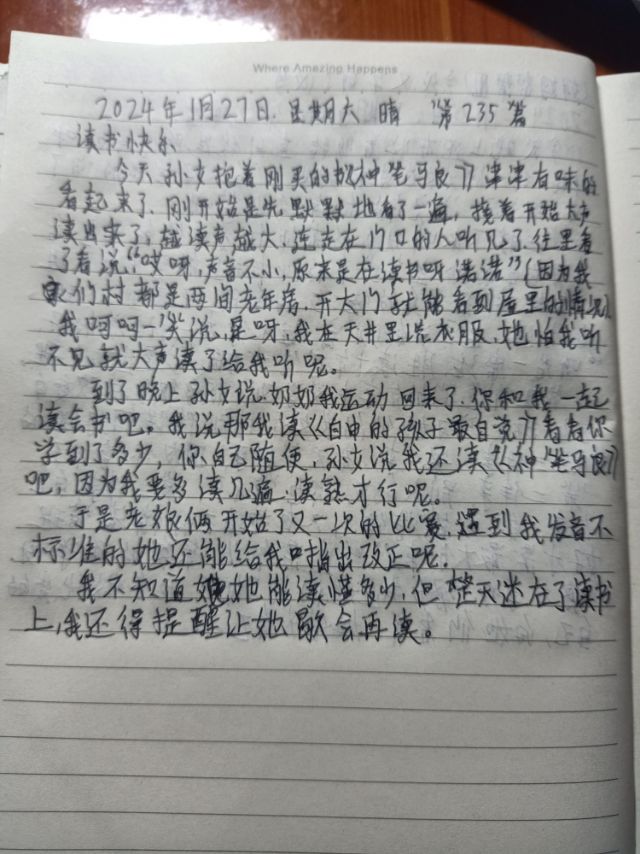 Where Amazing Happens
2024年1月27日.星期六 晴 第235篇
读书快乐
今天孙女抱着刚买的《神笔马良》津津有味的
看起来了.刚开始是先默默地看了一遍,接着开始大声
读出来了,越读声越大.连走在门口的人听见了往里看
了看说:“哎呀,声音不小,原来是在读书呀 诺诺”(因为我
们村都是两间老年房.开大门就能看到屋里的情况)
我呵呵一笑说,是呀,我在天井里洗衣服,她怕我听
不见就大声读了给我听呢。
到了晚上孙女说奶奶我运动回来了.你和我一起
读会书吧。我说那我读《自由的孩子最自觉》看看你
学到了多少,你自己随便,孙女说我还读《神笔马良》
吧,因为我要多读几遍.读熟才行呢。
于是老娘俩开始了又一次的比赛.遇到我发音不
标准的她还能给我指出改正呢.
我不知道她能读懂多少,但整天迷在了读书
上,我还得提醒让她歇会再读。